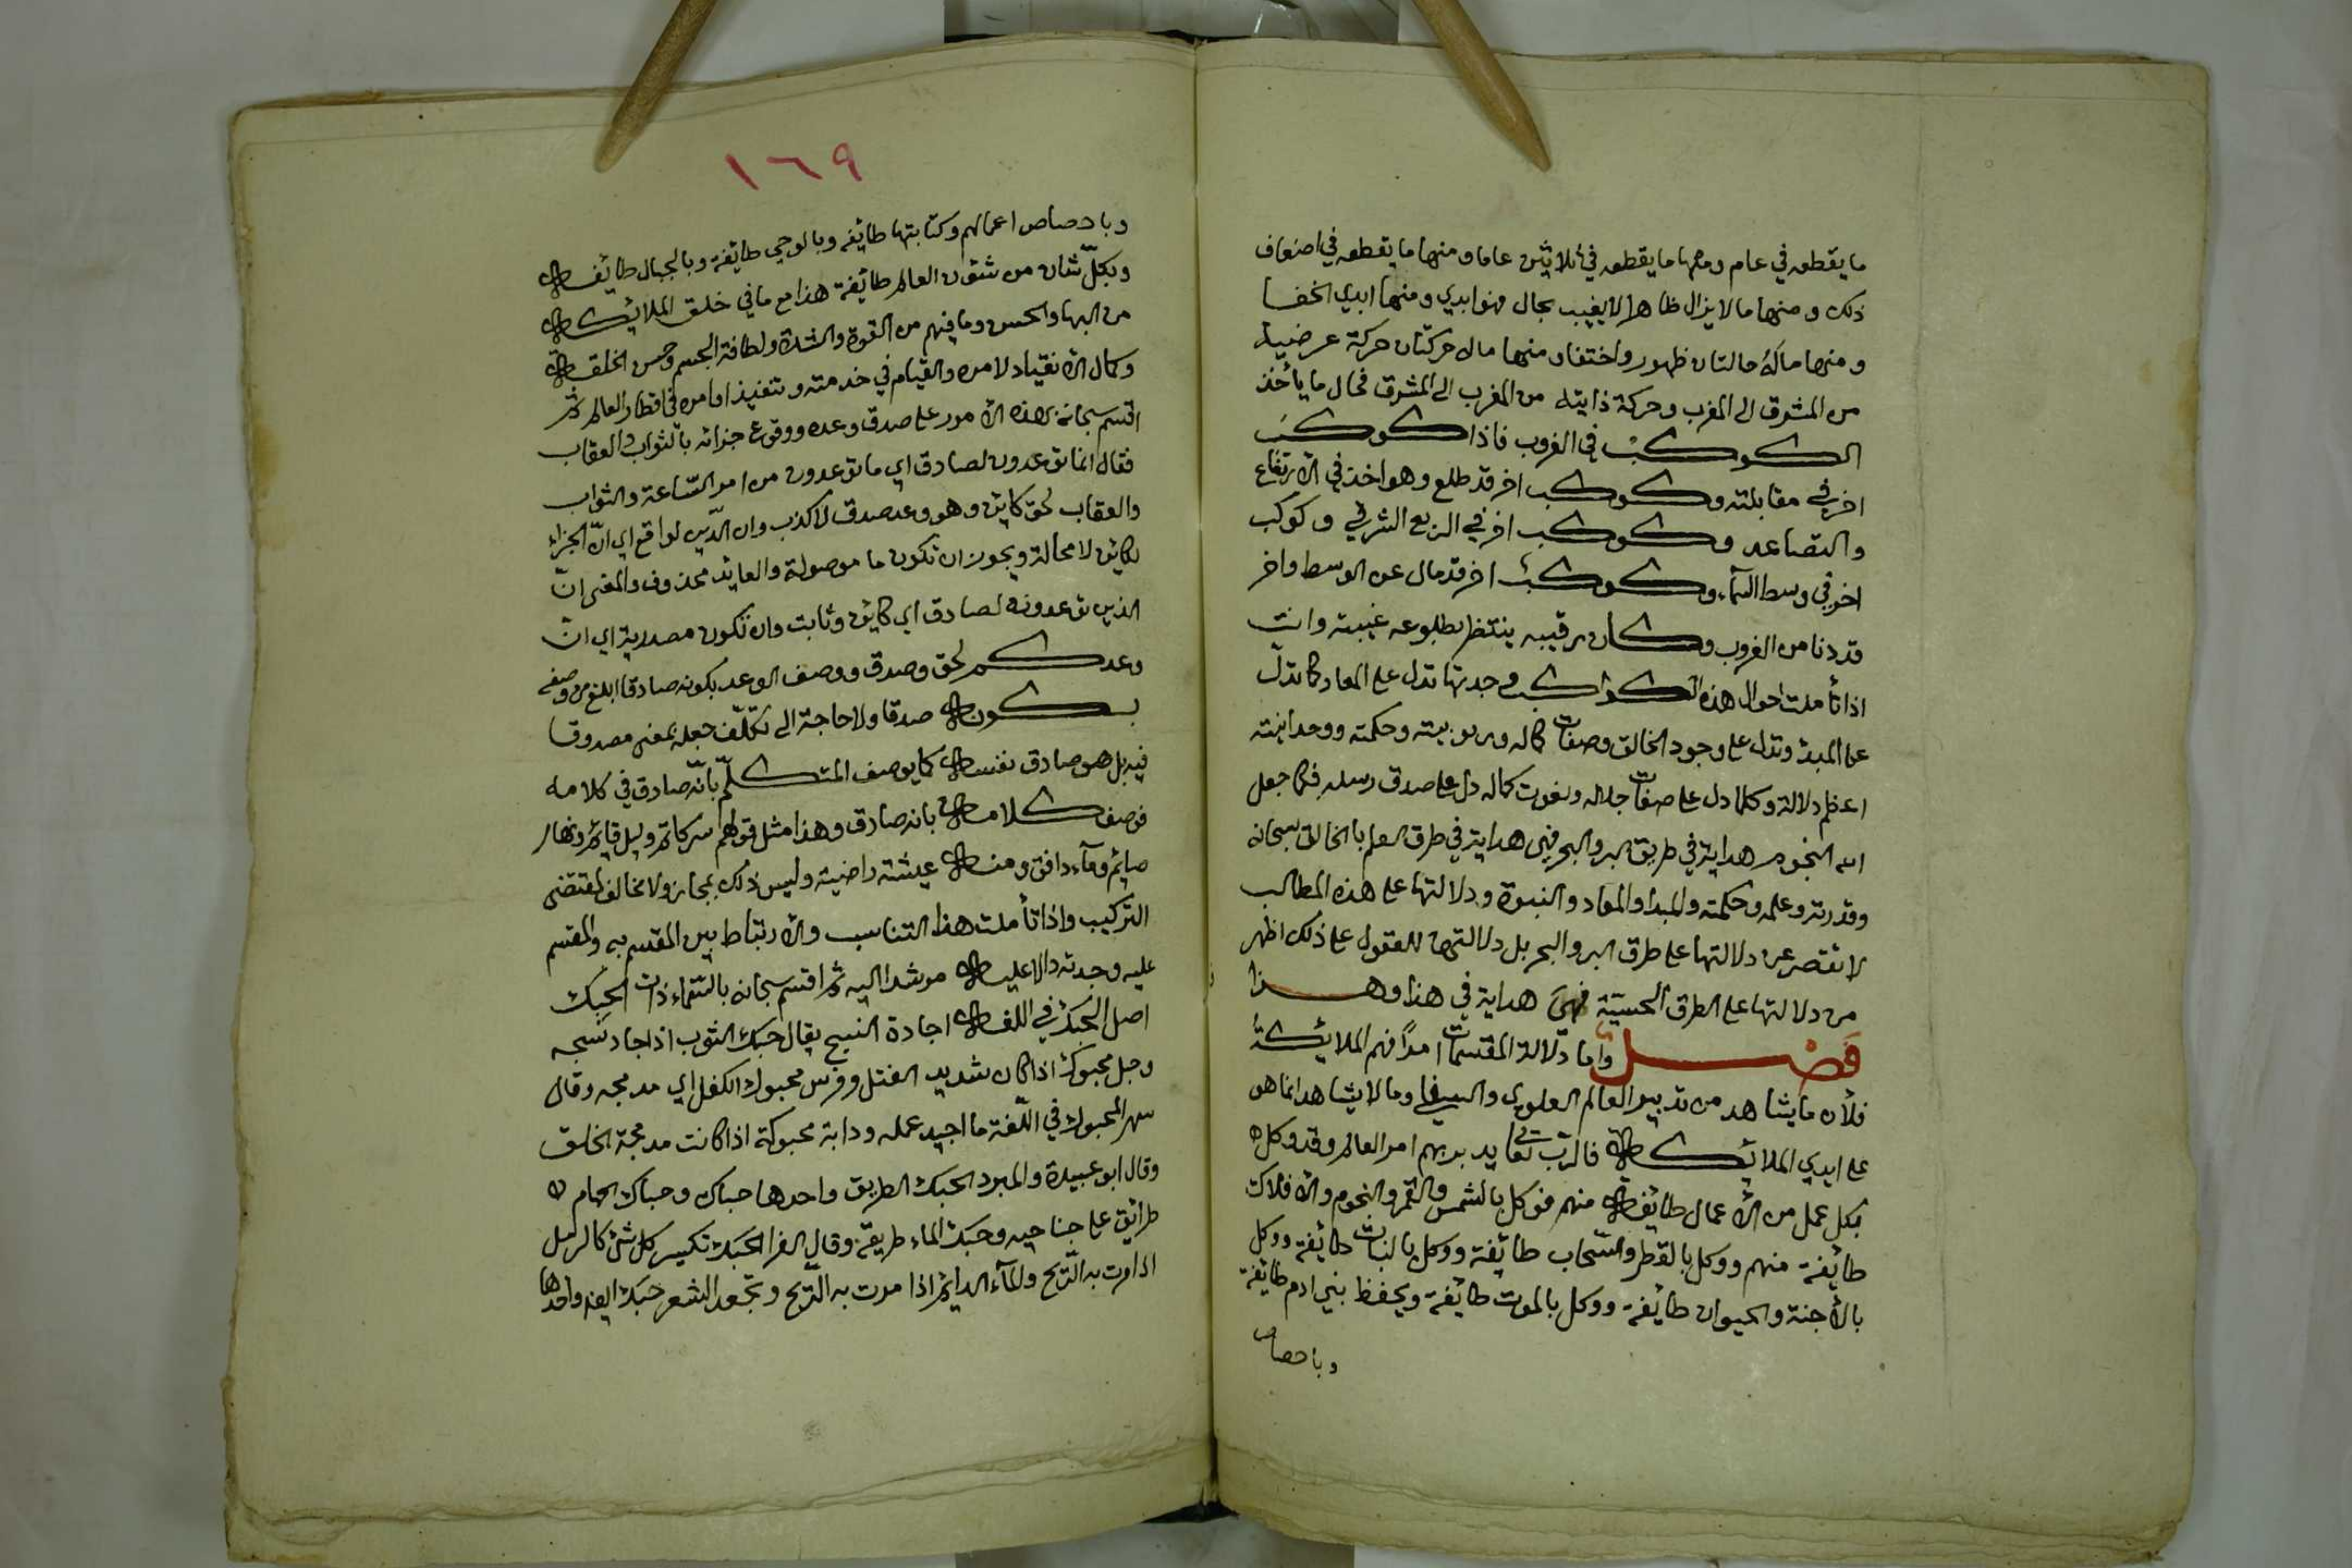 ما يقطعه في عام ومنها ما يقطعه في ثلاثين عاما ومنها ما يقطعه في اضعاف
ذلك ومنها ما لا يزال ظاهرا لا يغيب بحال فهو ابدي ومنها ابدي الخفا
ومنها ماله حالتان ظهور واختفاء منها ما له حركتان حركة عرضية
من المشرق الى المغرب وحركة ذاتيه من المغرب الى المشرق فحال ما يأخذ
الكوكب في الغروب فاذا كوكب
اخر في مقابلته وكوكب اخر قد طلع وهو اخذ في الارتفاع
والتصاعد وكوكب اخر في الربع الشرقي وكوكب
اخر في وسط السماء وكوكب اخر قد مال عن الوسط واخر
قد دنا من الغروب وكان رقيبه ينتظر بطلوعه غيبته وانت
اذا تأملت احوال هذه الكواكب وجدتها تدل على المعاد كما تدل
على المبدء وتدل على وجود الخالق وصفات كماله وربوبيته وحكمته ووحدانيته
اعظم دلالة وكلما دل على صفات جلاله ونعوت كماله دل على صدق رسله فكما جعل
الله النجوم هداية في طريق البر والبحر فهي هداية في طرق العلم بالخالق سبحانه
وقدرته وعلمه وحكمته والمبدا والمعاد والنبوة ودلالتها على هذه المطالب
لا تقتصر عن دلالتها على طرق البر والبحر بل دلالتها للعقول على ذلك اظهر
من دلالتها على الطرق الحسية فهي هداية في هذا وهذا
فصل واما دلالة المقسمات امرا فهم الملائكة
فلأن ما يشاهد من تدبير العالم العلوي والسفلي وما لا يشاهد انما هو
على ايدي الملائكة فالرب تعالى يدبر بهم امر العالم وقد وكل
بكل عمل من الأعمال طائفة منهم فوكل بالشمس والقمر والنجوم والافلاك
طايفة منهم ووكل بالقطر والسحاب طايفة ووكل بالنبات طايفة ووكل
بالأجنة والحيوان طايفة ووكل بالموت طايفة وبحفظ بني ادم طايفة
وباحصاء
١٦٩
وباحصاء اعمالهم وكتابتها طايفة وبالوحي طايفة وبالجبال طايفة
وبكل شان من شئون العالم طايفة هذا مع ما في خلق الملائكة
من البهاء والحسن وما فيهم من القوة والشدة ولطافة الجسم وحسن الخلقة
وكمال الانقياد لامره والقيام في خدمته وتنفيذ اوامره في اقطار العالم ثم
اقسم سبحانه بهذه الامور على صدق وعده ووقوع جزائه بالثواب والعقاب
فقال انما توعدون لصادق اي ما توعدون من امر الساعة والثواب
والعقاب لحق كاين وهو وعد صدق لا كذب وان الدين لواقع اي ان الجزاء
لكاين لا محالة ويجوز ان تكون ما موصولة والعايد محذوف والمعنى ان
الذين توعدونه لصادق اي كاين وثابت وان تكون مصدرية اي ان
وعدكم لحق وصدق ووصف الوعد بكونه صادقا ابلغ من وصفه
بكونه صدقا ولا حاجة الى تكلف جعله بمعنى مصدوقا
فيه بل هو صادق نفسه كما يوصف المتكلم بانه صادق في كلامه
فوصف كلامه بانه صادق وهذا مثل قولهم سر كاتم وليل قايم ونهار
صايم وماء دافق ومنه عيشة راضية وليس ذلك بمجاز ولا مخالف لمقتضى
التركيب واذا تأملت هذا التناسب والارتباط بين المقسم به والمقسم
عليه وجدته دالا عليه مرشدا اليه ثم اقسم سبحانه بالسماء ذات الحبك
اصل الحبك في اللغة اجادة النسج يقال حبك الثوب اذا اجاد نسجه
وحبل محبوك اذا كان شديد الفتل وفرس محبوك الكفل اي مدمجه وقال
شمر المحبوك في اللغة ما اجيد عمله ودابة محبوكة اذا كانت مدمجة الخلق
وقال ابو عبيدة والمبرد الحبك الطريق واحدها حباك وحباك الحمام
طرائق على جناحيه وحبك الماء طريقه وقال الفرا الحبك تكسير كل شئ كالرمل
اذا مرت به الريح والماء الدايم اذا مرت به الريح وتجعد الشعر حبك ايضا واحدها